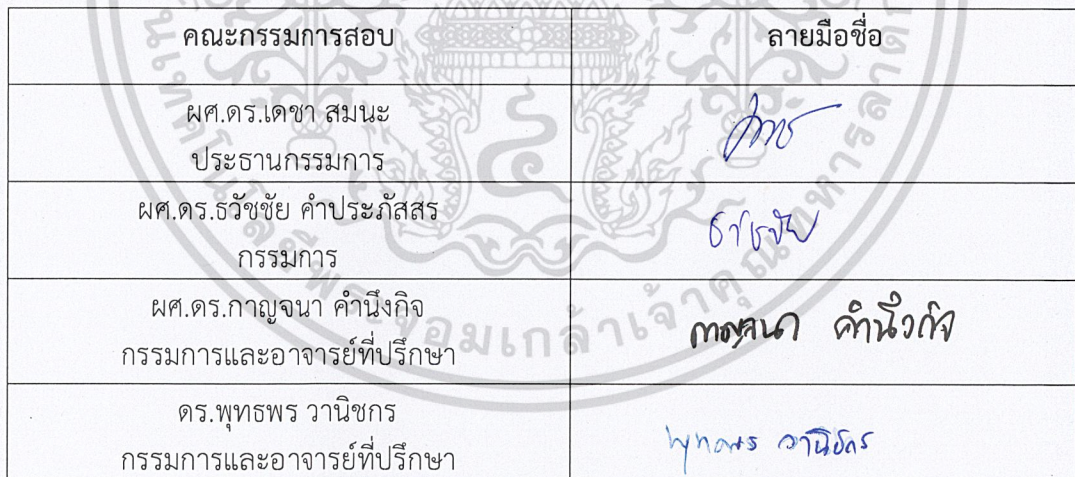 คณะกรรมการสอบ ลายมือชื่อ
ผศ.ดร.เดชา สมนะ
ประธานกรรมการ
ผศ.ดร.ธวัชชัย คำประภัสสร
กรรมการ
ธวัชชัย
ผศ.ดร.กาญจนา คำนึงกิจ
กรรมการและอาจารย์ที่ปรึกษา
กาญจนา คำนึงกิจ
ดร.พุทธพร วานิชกร
กรรมการและอาจารย์ที่ปรึกษา
พุทธพร วานิชกร